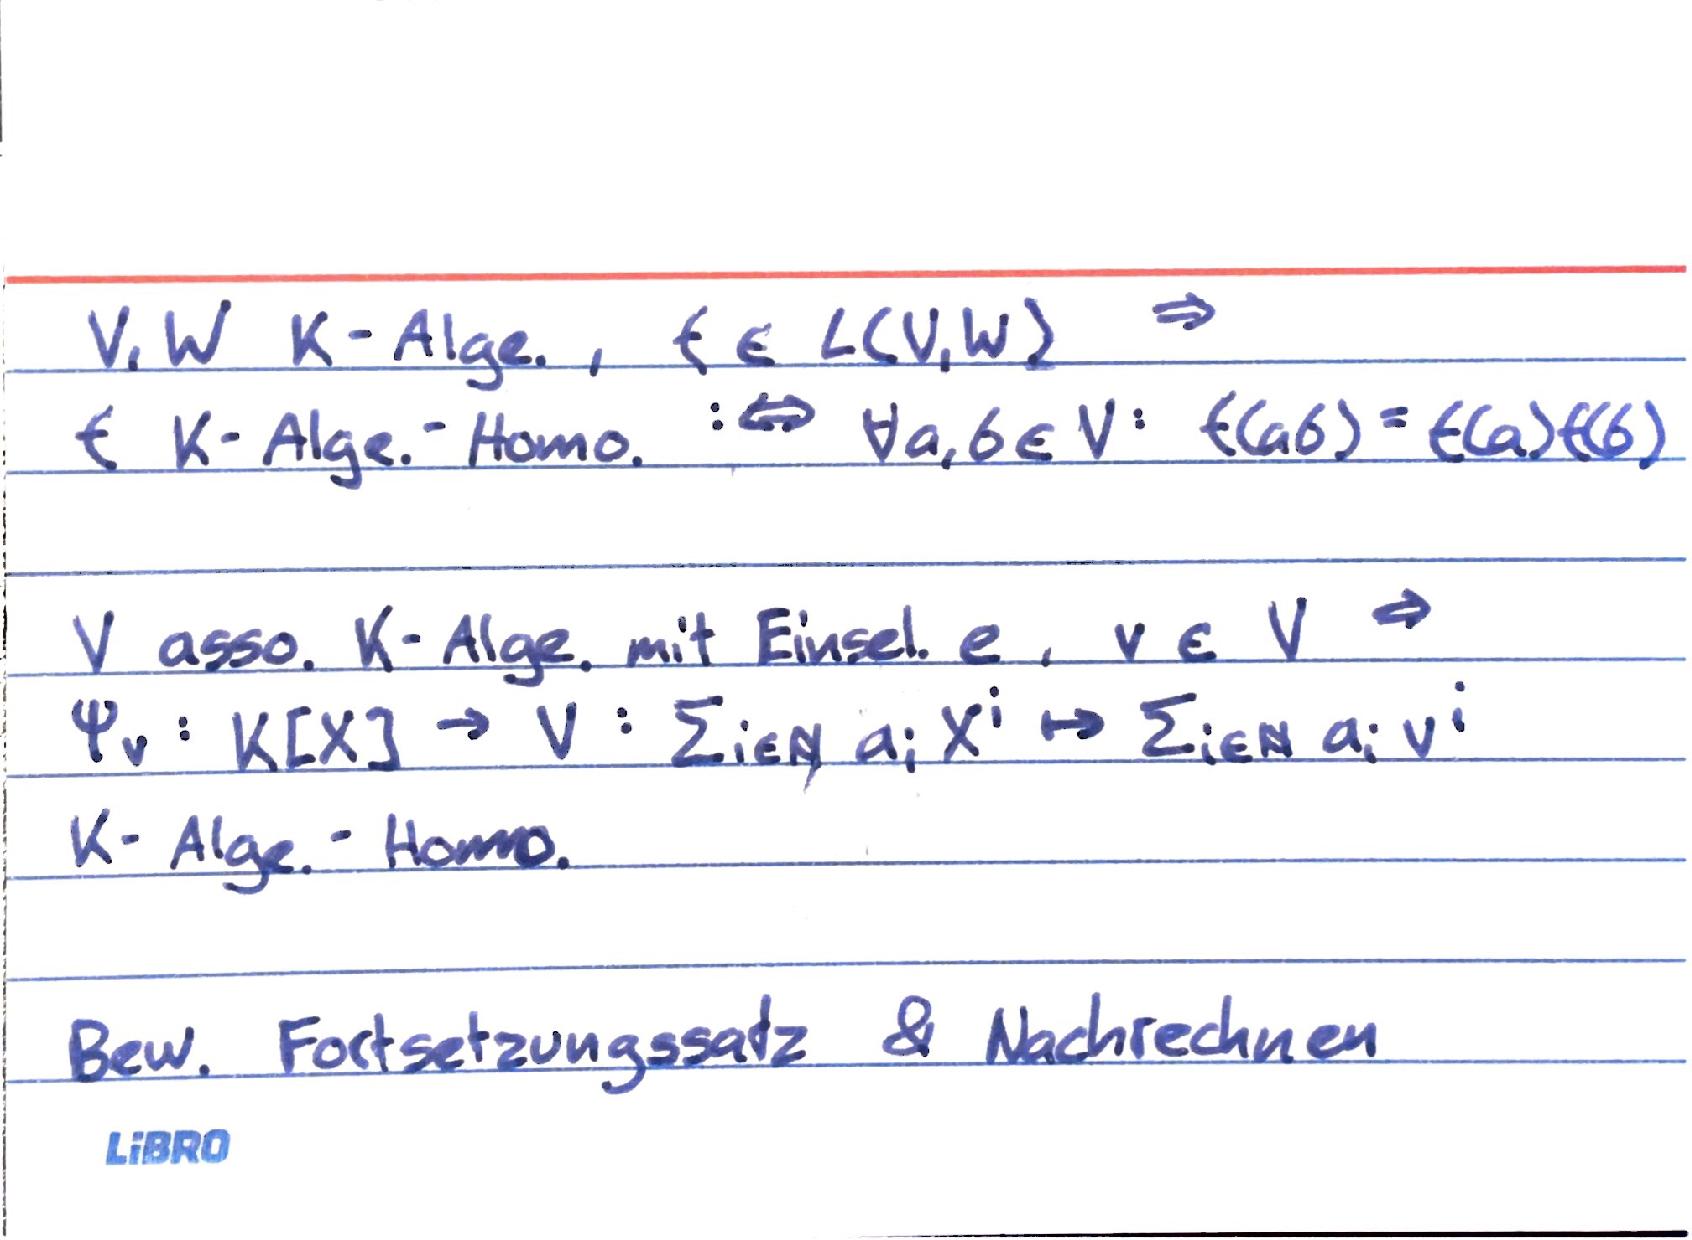 V, W K-Alge., f ∈ L(V,W) ⇒
f K-Alge.-Homo. :⇔ ∀a,b ∈ V: f(ab) = f(a)f(b)
V asso. K-Alge. mit Einsel. e, v ∈ V ⇒
Ψᵥ : K[X] → V : Σ_{i∈ℕ} aᵢ Xⁱ ↦ Σ_{i∈ℕ} aᵢ vⁱ
K-Alge.-Homo.
Bew. Fortsetzungssatz & Nachrechnen
LiBRO